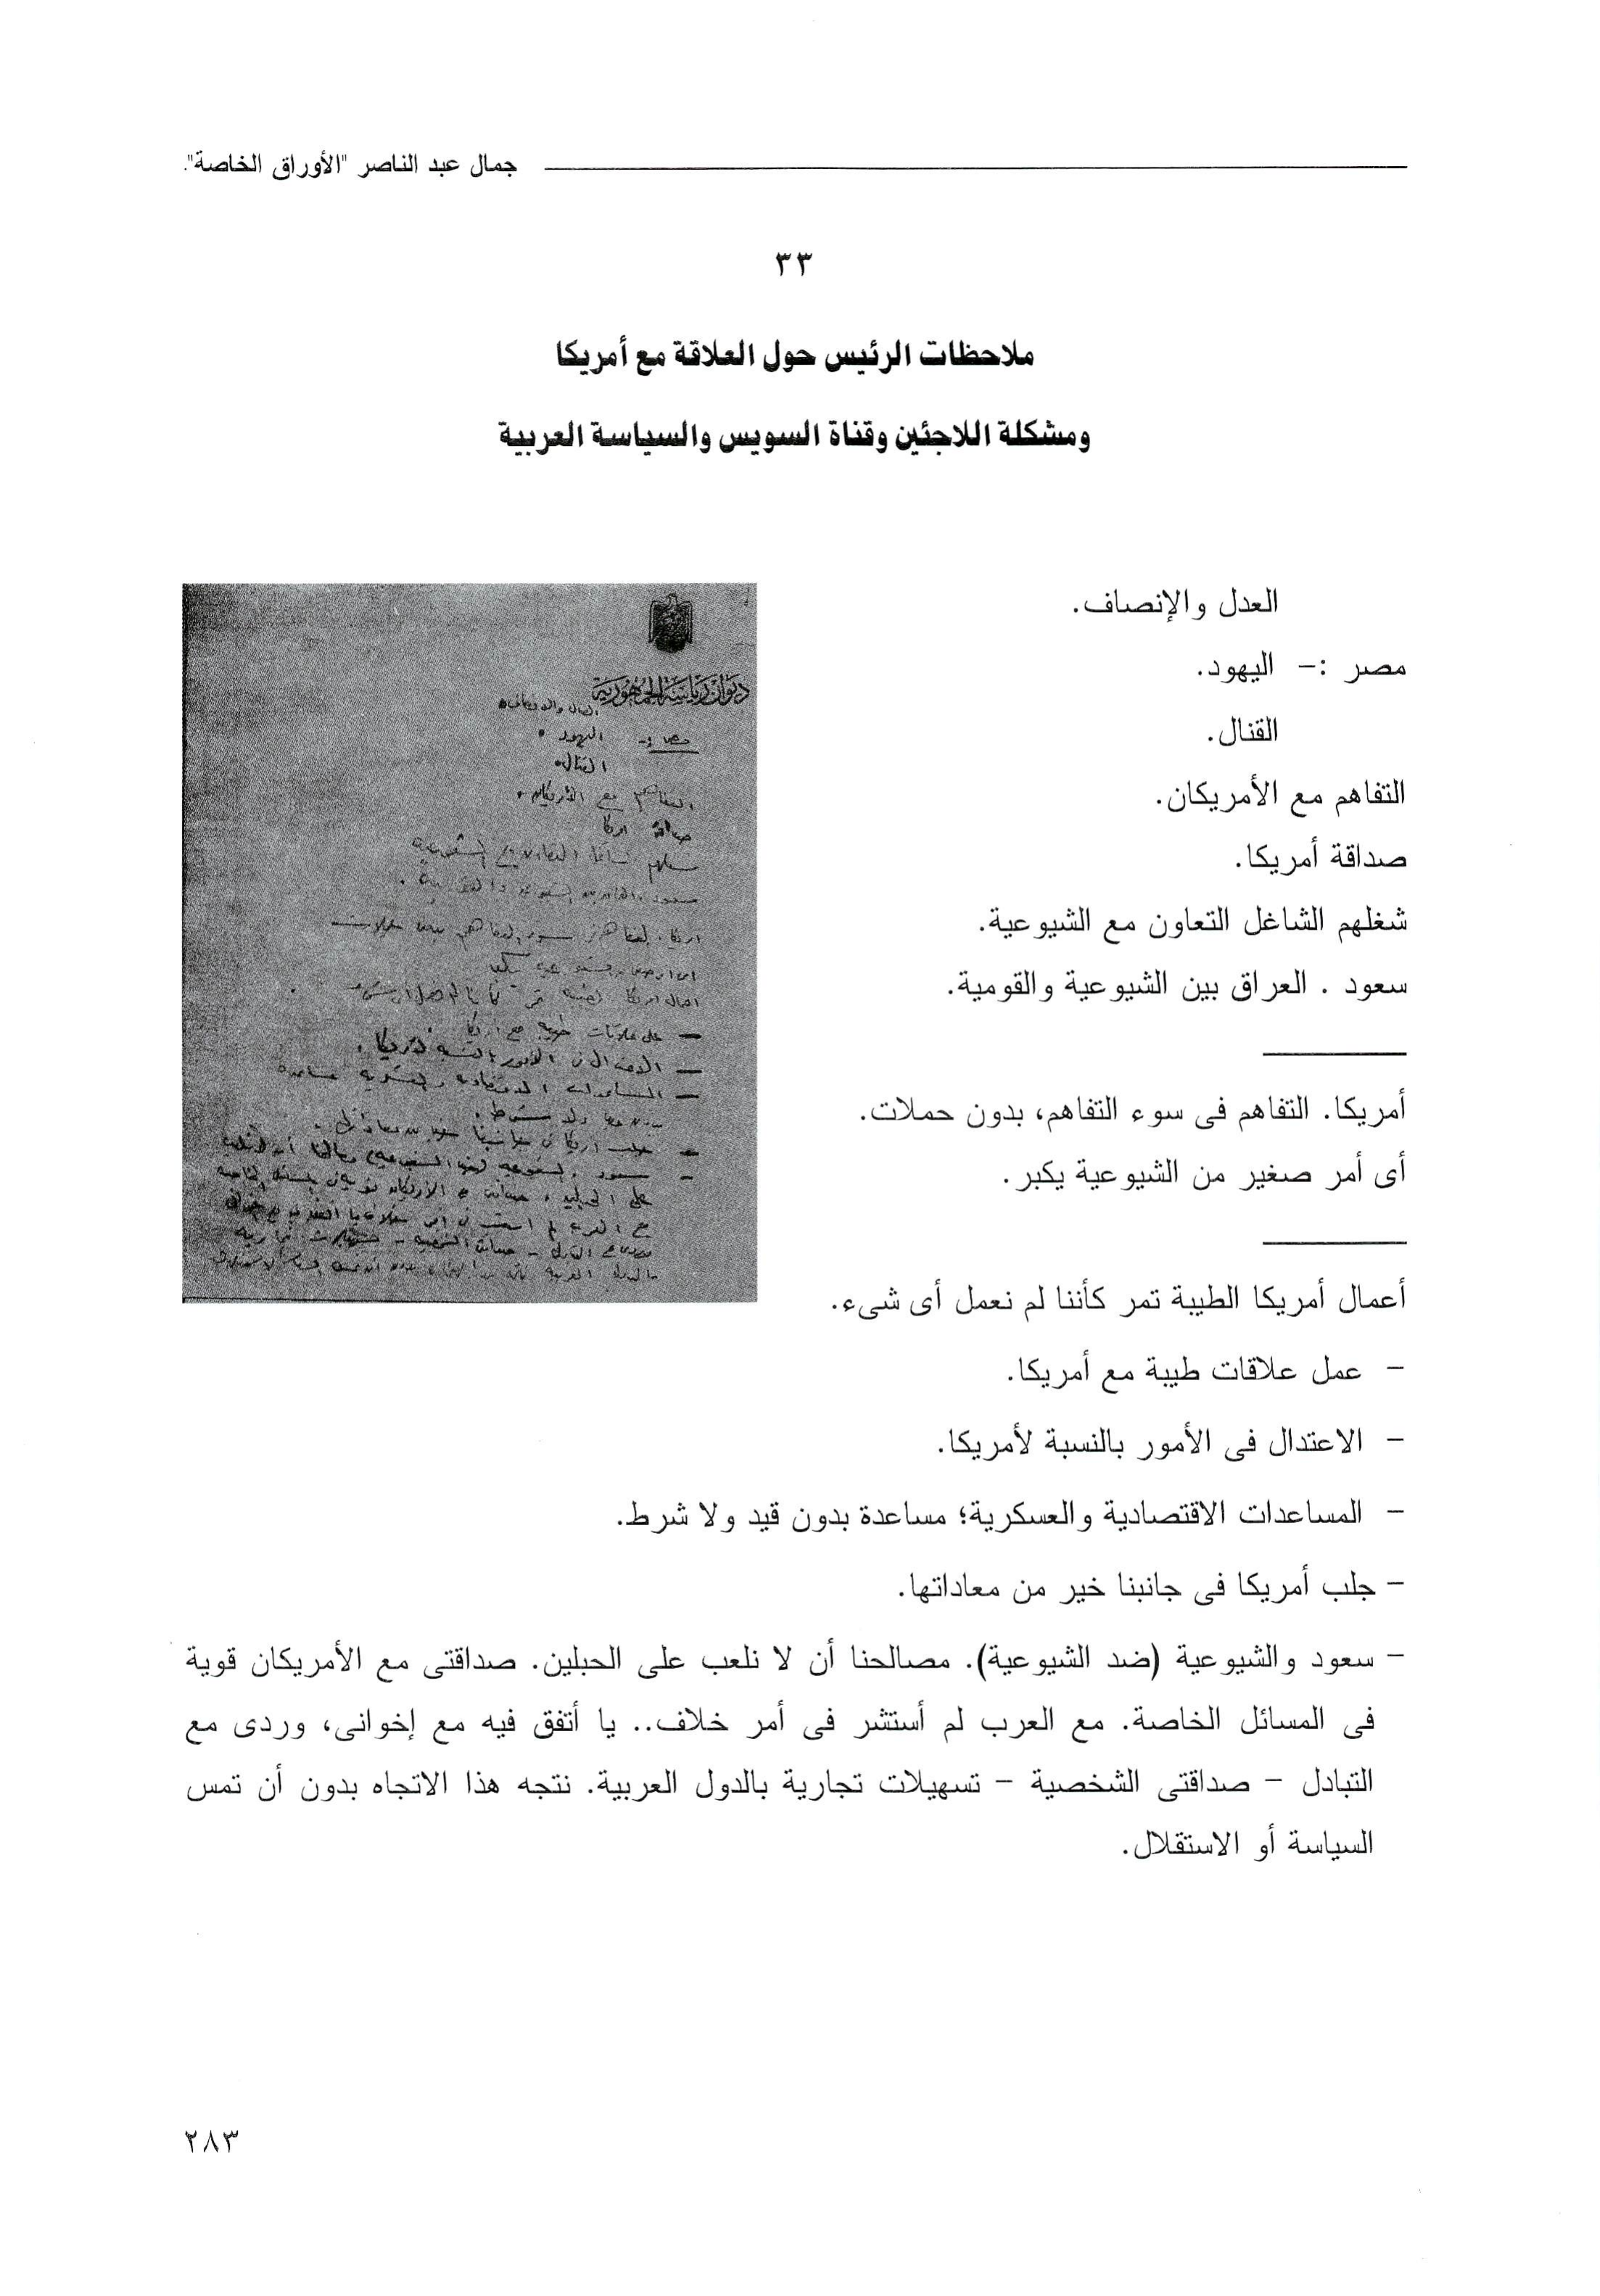 جمال عبد الناصر "الأوراق الخاصة".
٣٣
ملاحظات الرئيس حول العلاقة مع أمريكا
ومشكلة اللاجئين وقناة السويس والسياسة العربية
العدل والإنصاف.
مصر :- اليهود.
القنال.
التفاهم مع الأمريكان.
صداقة أمريكا.
شغلهم الشاغل التعاون مع الشيوعية.
سعود . العراق بين الشيوعية والقومية.
أمريكا. التفاهم فى سوء التفاهم، بدون حملات.
أى أمر صغير من الشيوعية يكبر.
أعمال أمريكا الطيبة تمر كأننا لم نعمل أى شىء.
- عمل علاقات طيبة مع أمريكا.
- الاعتدال فى الأمور بالنسبة لأمريكا.
- المساعدات الاقتصادية والعسكرية؛ مساعدة بدون قيد ولا شرط.
- جلب أمريكا فى جانبنا خير من معاداتها.
- سعود والشيوعية (ضد الشيوعية). مصالحنا أن لا نلعب على الحبلين. صداقتى مع الأمريكان قوية
فى المسائل الخاصة. مع العرب لم أستشر فى أمر خلاف.. يا أتفق فيه مع إخوانى، وردى مع
التبادل - صداقتى الشخصية - تسهيلات تجارية بالدول العربية. نتجه هذا الاتجاه بدون أن تمس
السياسة أو الاستقلال.
ديوان رياسة الجمهورية
اليهود .
القنال.
٢٨٣